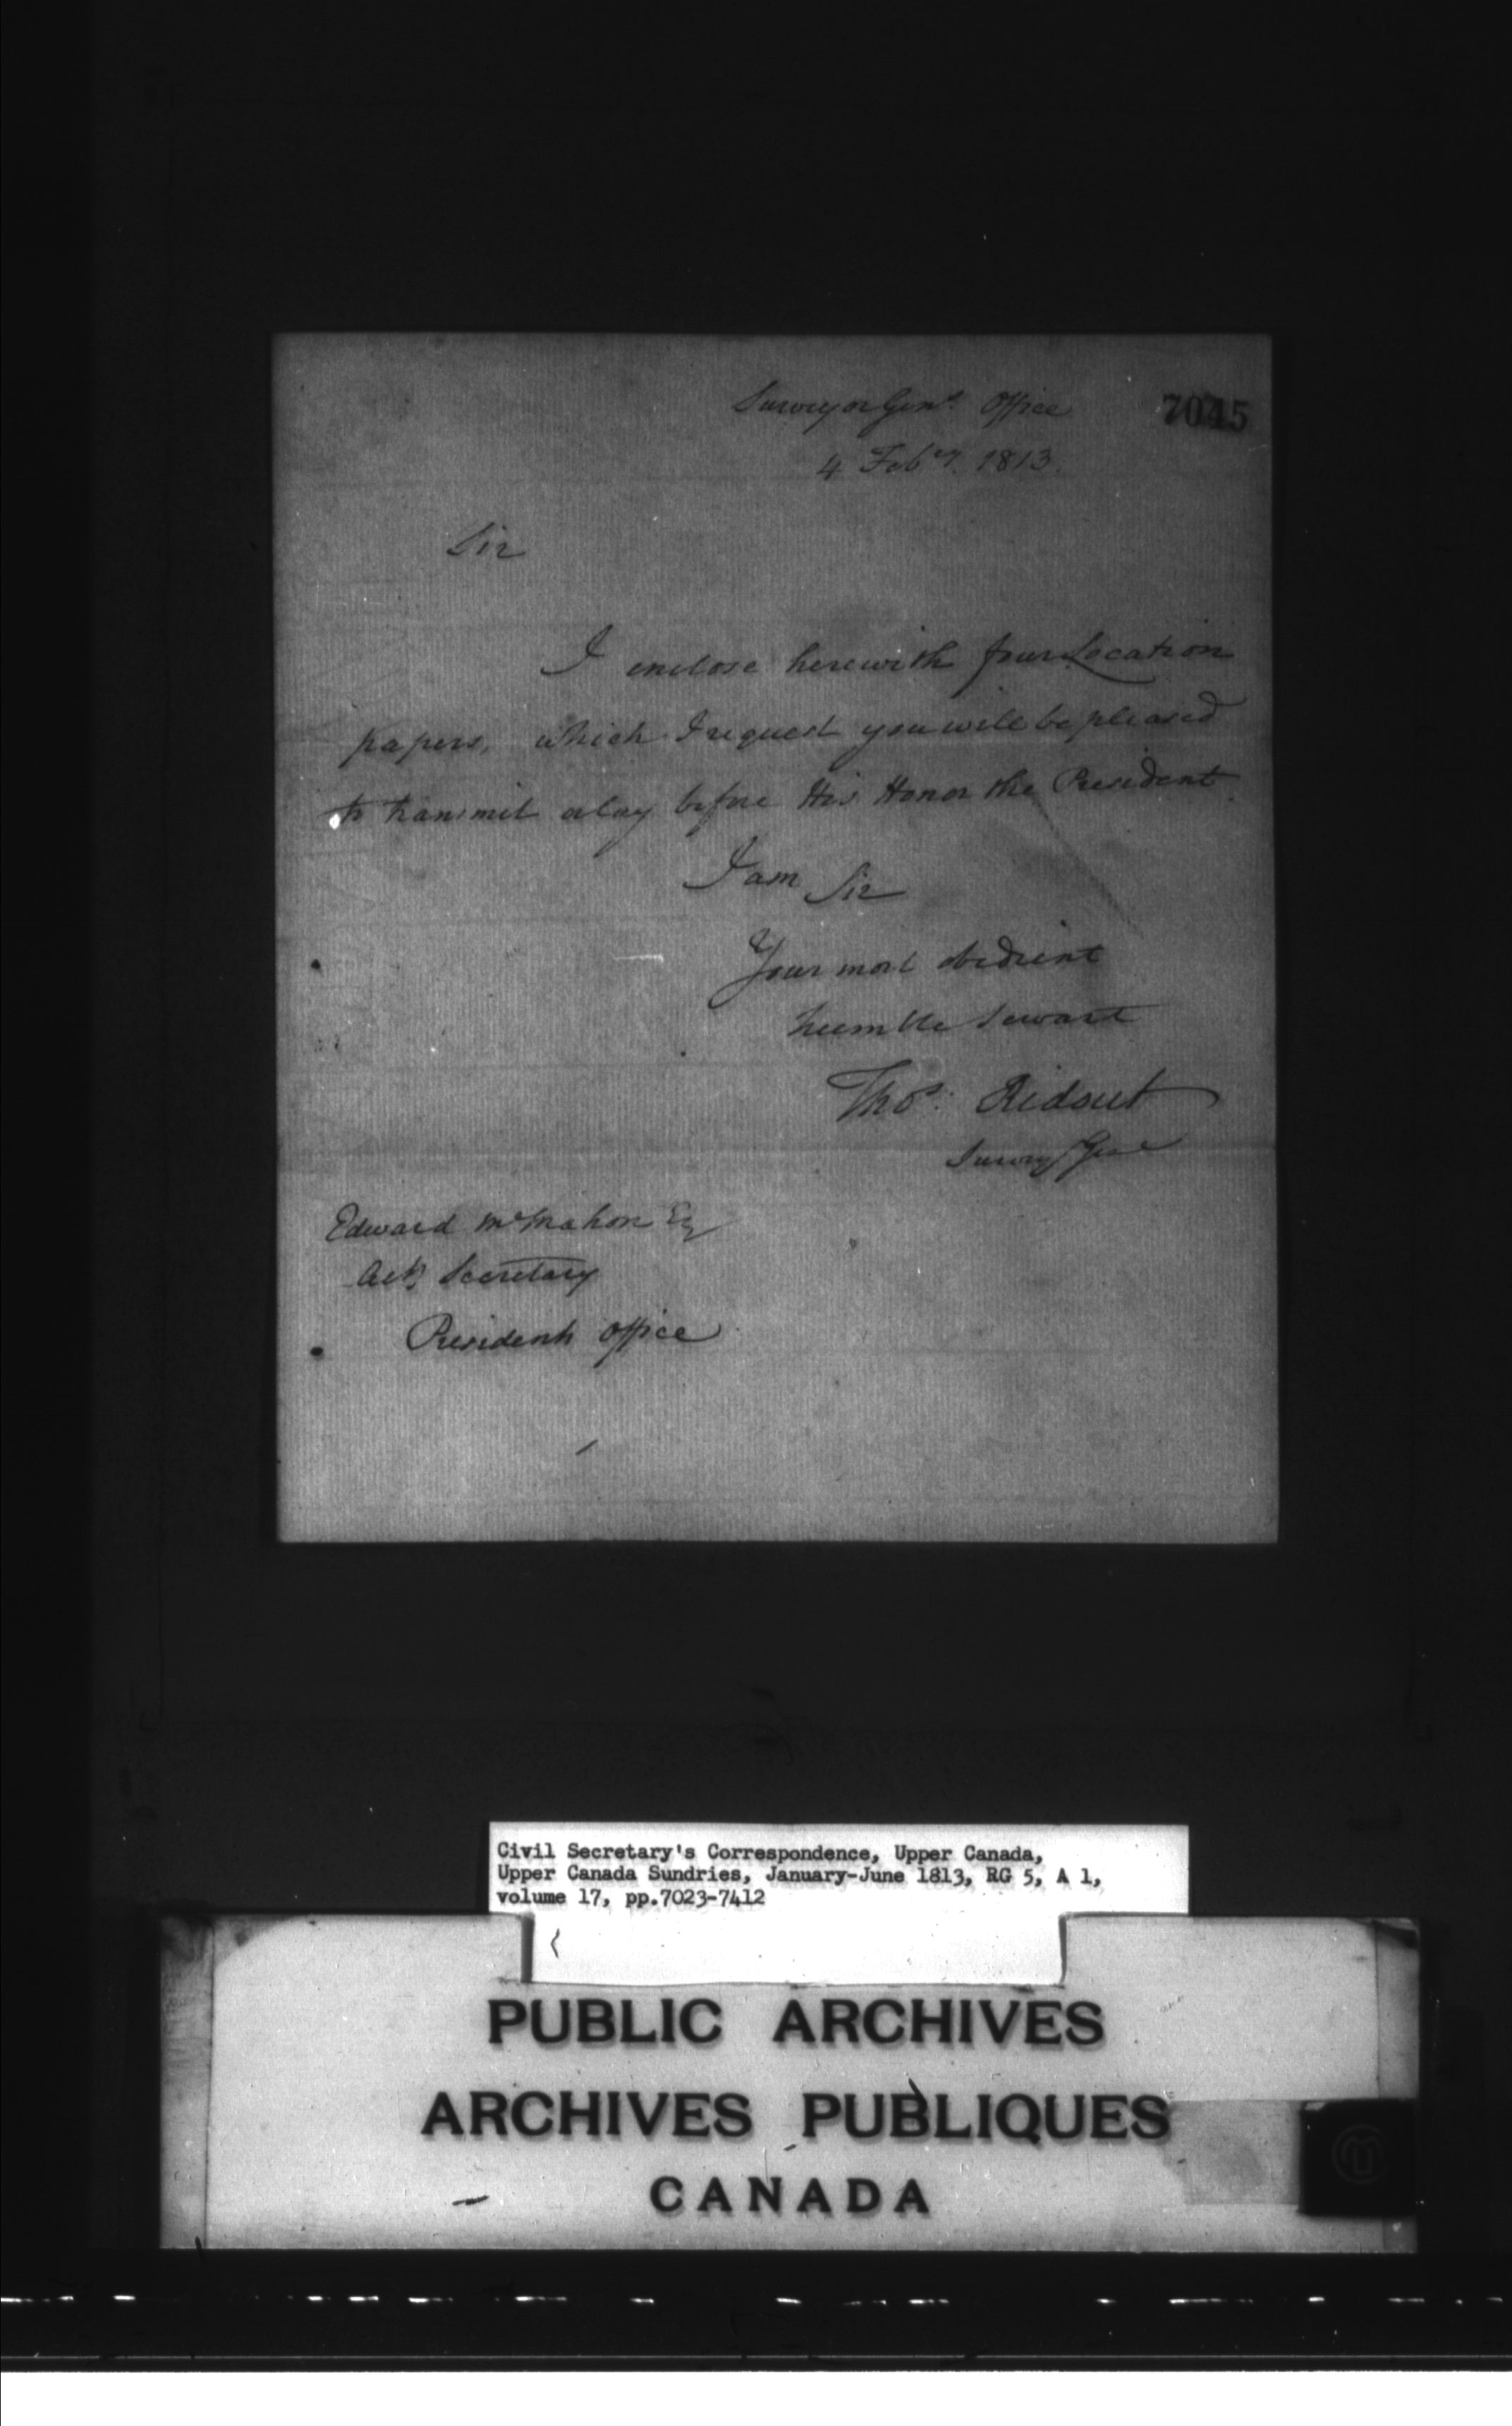 Surveyor Genl. Office
7045
4 Feby. 1813.
Sir
I enclose herewith four Location
papers, which I request you will be pleased
to transmit or lay before His Honor the President
I am Sir
Your most obedient
humble Servant
Thos. Ridout
Survey Genl
Edward McMahon Esq
Actg Secretary
Presidents Office
Civil Secretary's Correspondence, Upper Canada,
Upper Canada Sundries, January-June 1813, RG 5, A 1,
volume 17, pp.7023-7412
PUBLIC ARCHIVES
ARCHIVES PUBLIQUES
CANADA